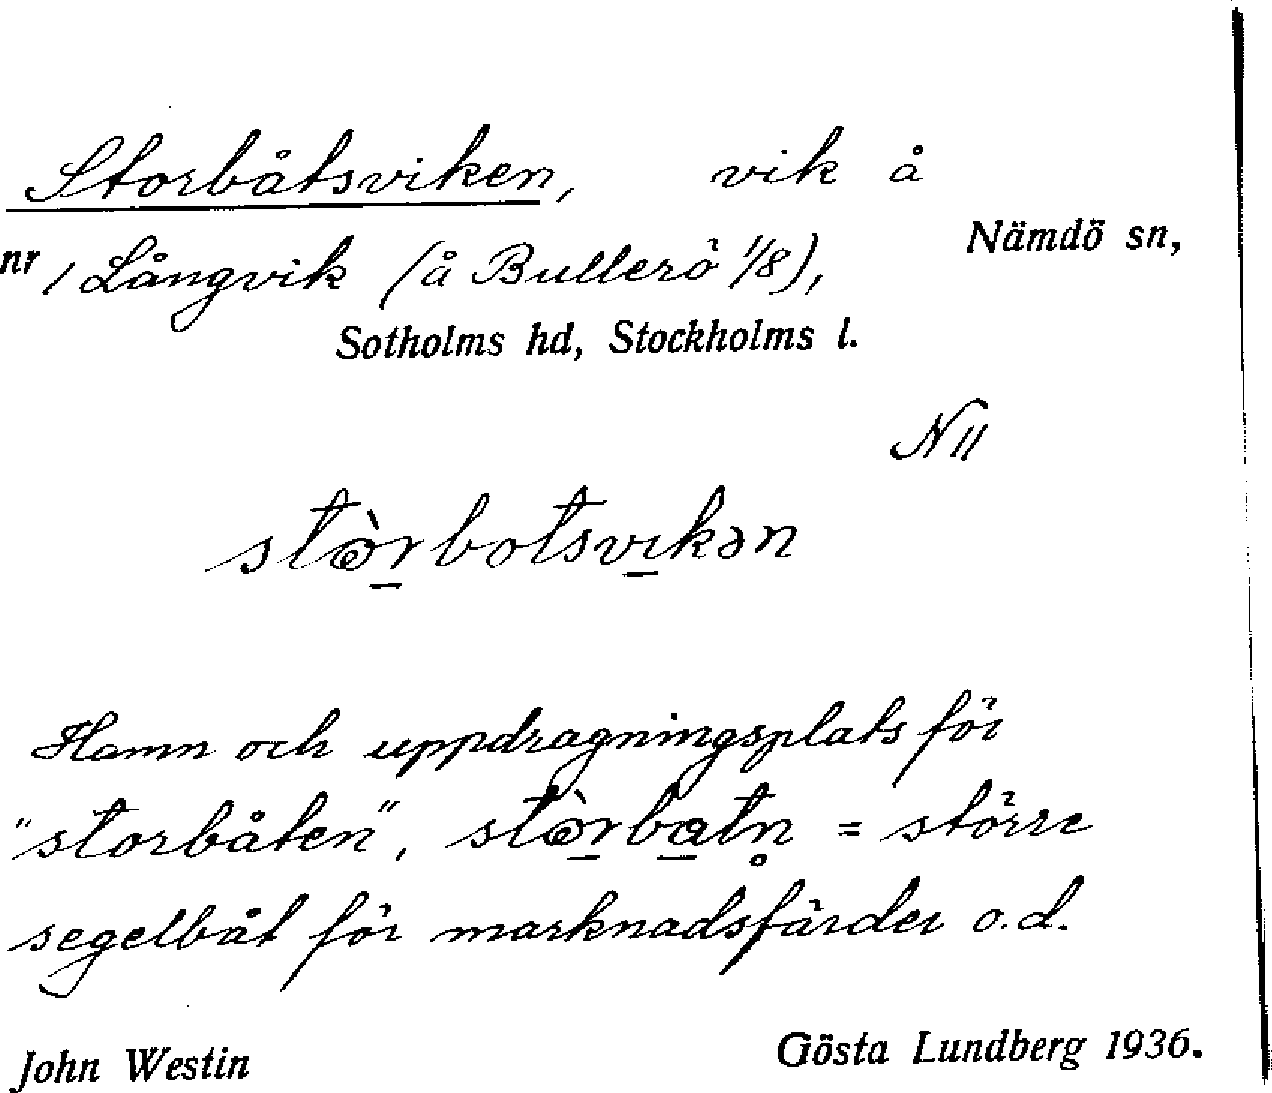 Storbåtsviken, vik å
nr 1 Långvik (å Bullerö 1/8), Nämdö sn,
Sotholms hd, Stockholms l.
N II
"storbåten", = större
Hamn och uppdragningsplats för
segelbåt för marknadsfärder o.d.
John Westin Gösta Lundberg 1936.